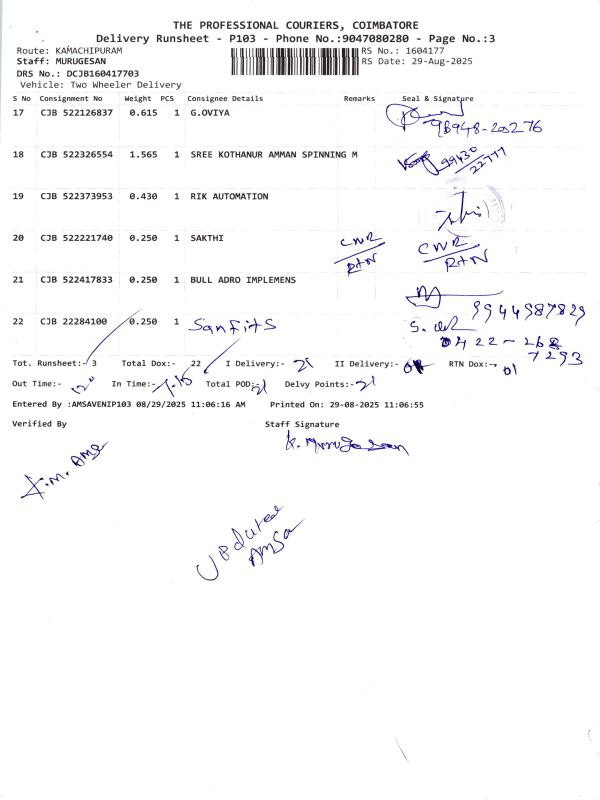 THE PROFESSIONAL COURIERS, COIMBATORE
Delivery Runsheet - P103 - Phone No.:9047080280 - Page No.:3
Route: KAMACHIPURAM RS No.: 1604177
Staff: MURUGESAN RS Date: 29-Aug-2025
DRS No.: DCJB160417703
Vehicle: Two Wheeler Delivery
S No Consignment No Weight PCS Consignee Details Remarks Seal & Signature
17 CJB 522126837 0.615 1 G.OVIYA
98948-20276
18 CJB 522326554 1.565 1 SREE KOTHANUR AMMAN SPINNING M
99430
22777
19 CJB 522373953 0.430 1 RIK AUTOMATION
20 CJB 522221740 0.250 1 SAKTHI CNR CNR
RTN RTN
21 CJB 522417833 0.250 1 BULL ADRO IMPLEMENS
9944987829
22 CJB 22284100 0.250 1 Sanfits
0422-268
7293
Tot. Runsheet:- 3 Total Dox:- 22 I Delivery:- 21 II Delivery:- RTN Dox:- 01
Out Time:- In Time:- Total POD:- 21 Delvy Points:- 21
Entered By :AMSAVENIP103 08/29/2025 11:06:16 AM Printed On: 29-08-2025 11:06:55
Verified By Staff Signature
K. Murugesan
Updated
AMSa